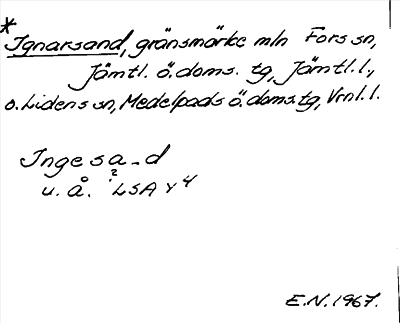 *
Ignarsand, gränsmärke mln Fors sn,
Jämtl. ö. doms. tg, Jämtl. l.,
o. Lidens sn, Medelpads ö. doms. tg, Vrnl. l.
Ingesa-d
u. å. LSA Y 4
?
E.N. 1967.